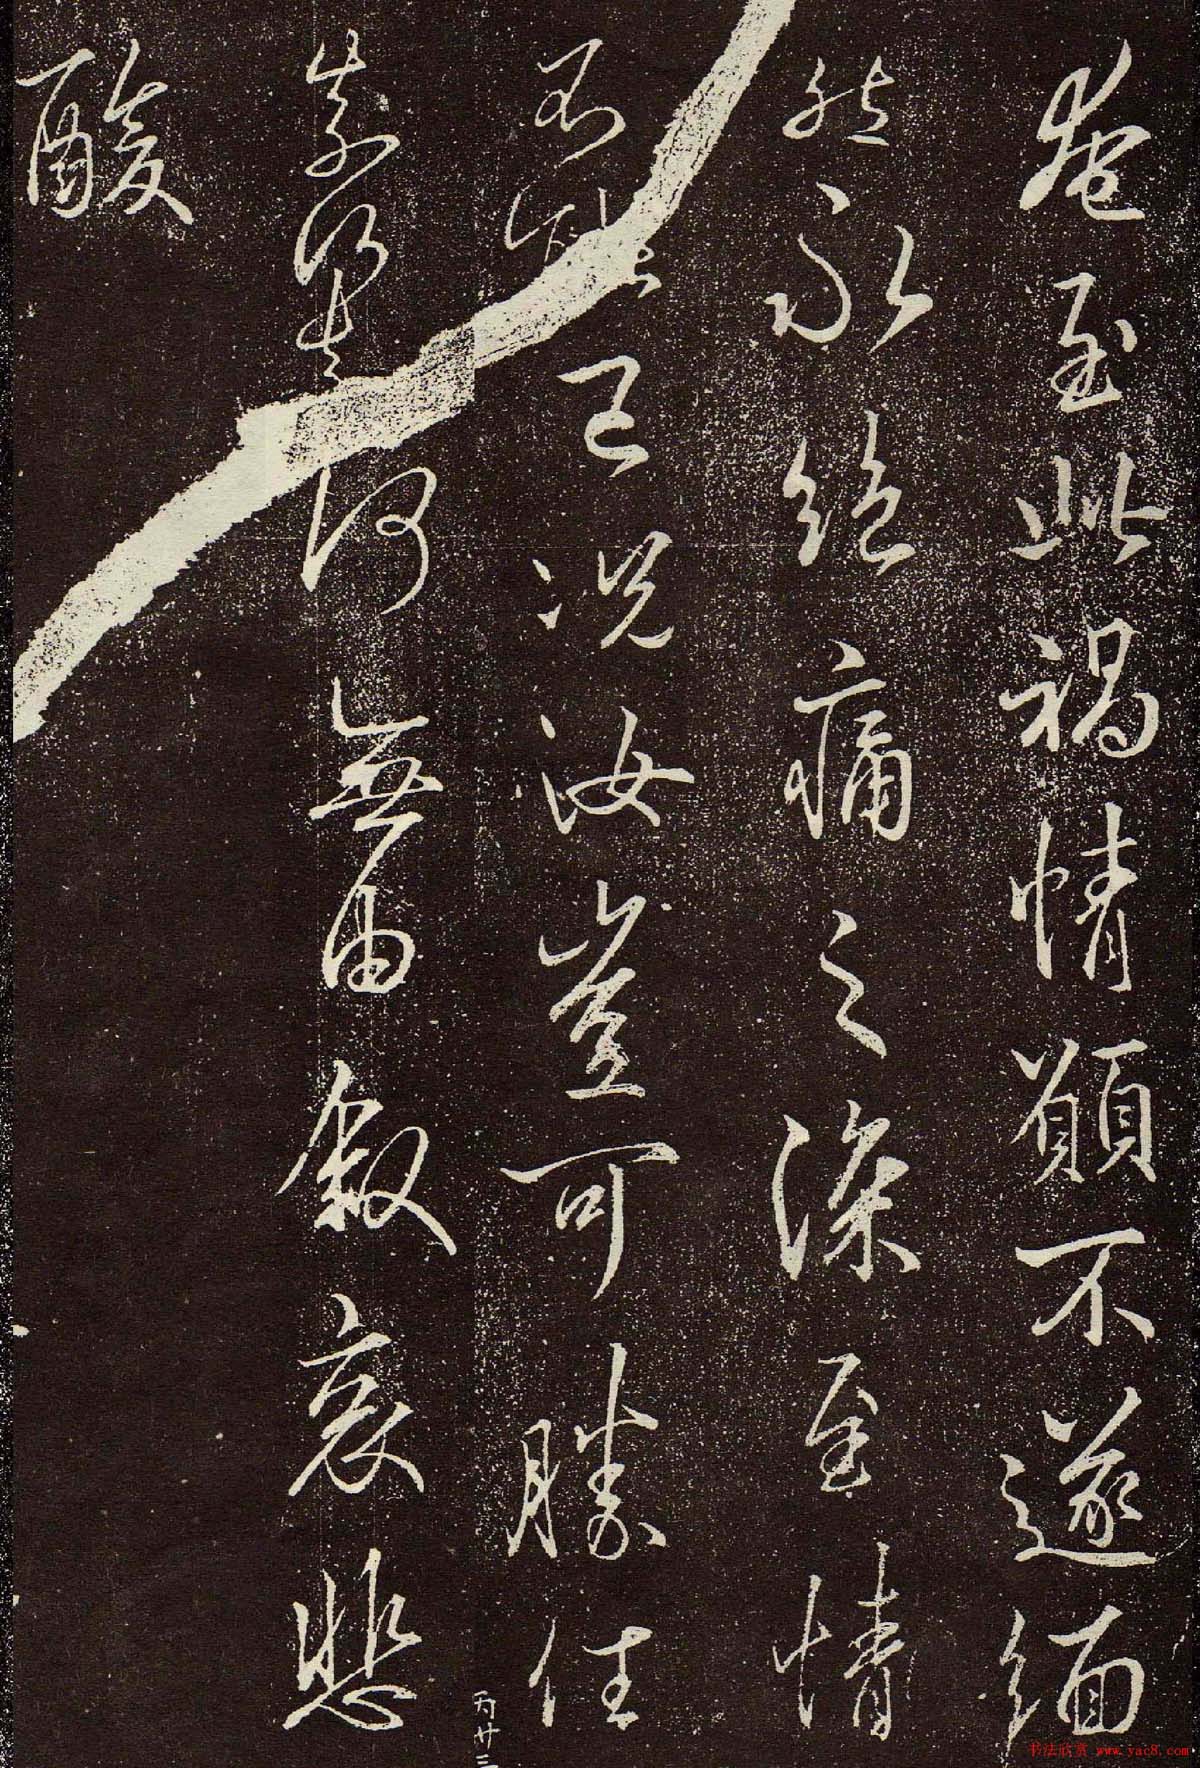 奄至此禍情願不遂緬
然永絕痛之深至情
不能已況汝豈可勝任
奈何奈何無由敘哀悲
酸
丙廿三
书法欣赏 www.yac8.com